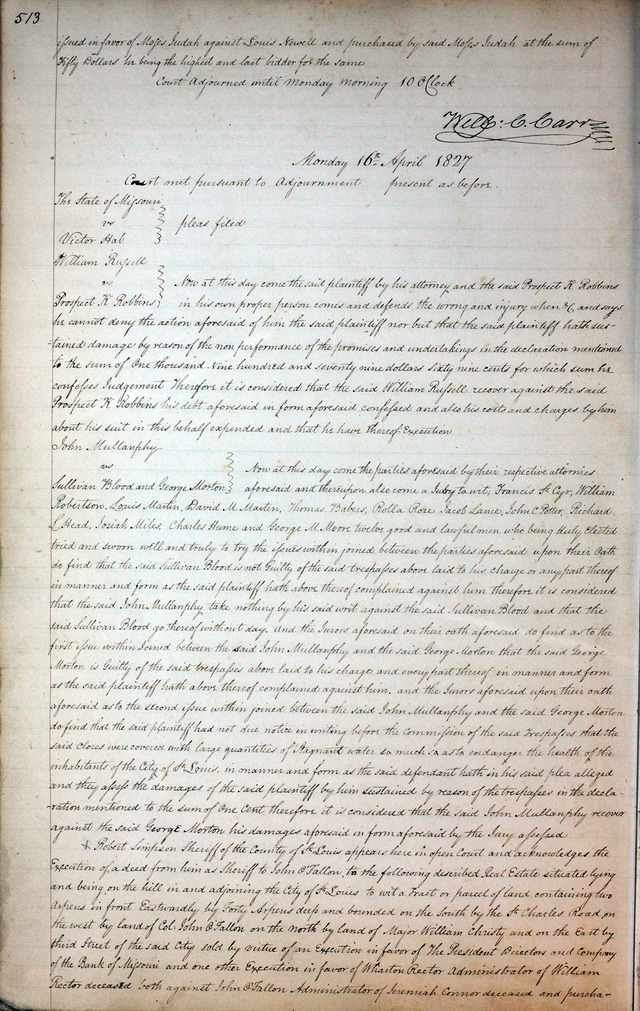 513
issued in favor of Moses Judah against Louis Newell and purchased by said Moses Judah at the sum of
Fifty Dollars he being the highest and last bidder for the same
Court Adjourned until Monday morning 10 OClock
Will: C. Carr
Monday 16th April 1827
Court met pursuant to Adjournment present as before.
The State of Missouri
vs
Victor Hab
pleas filed
William Russell
vs
Prospect K Robbins
Now at this day come the said plaintiff by his attorney and the said Prospect K Robbins
in his own proper person comes and defends the wrong and injury when &C and says
he cannot deny the action aforesaid of him the said plaintiff nor but that the said plaintiff hath sus-
tained damage by reason of the non performance of the promises and undertakings in the declaration mentioned
to the sum of One thousand Nine hundred and seventy nine dollars sixty nine cents for which sum he
confesses Judgement Therefore it is considered that the said William Russell recover against the said
Prospect K Robbins his debt aforesaid in form aforesaid confessed and also his costs and charges by him
about his suit in this behalf expended and that he have thereof Execution
John Mullanphy
vs
Sullivan Blood and George Morton
Now at this day come the parties aforesaid by their respective attornies
aforesaid and thereupon also come a Jury to wit, Francis St Cyr, William
Robertson, Louis Martin, David M. Martin, Thomas Rolla Jacob Lane, John C Potter, Richard
Head, Josiah Miles, Charles Hume and George M. Moore twelve good and lawful men who being duly elected
tried and sworn well and truly to try the issues within joined between the parties aforesaid upon their Oath
do find that the said Sullivan Blood is not Guilty of the said trespasses above laid to his charge or any part thereof
in manner and form as the said plaintiff hath above thereof complained against him therefore it is considered
that the said John Mullanphy take nothing by his said writ against the said Sullivan Blood and that the
said Sullivan Blood go thereof without day. And the Jurors aforesaid on their oath aforesaid do find as to the
first issue within joined between the said John Mullanphy and the said George Morton that the said George
Morton is Guilty of the said trespasses above laid to his charge and every part thereof in manner and form
as the said plaintiff hath above thereof complained against him, and the Jurors aforesaid upon their oath
aforesaid as to the second issue within joined between the said John Mullanphy and the said George Morton
do find that the said plaintiff had not due notice in writing before the Commission of the said trespasses that the
said closes were covered with large quantities of Stagnant water so much so as to endanger the health of the
inhabitants of the City of St Louis, in manner and form as the said defendant hath in his said plea alleged
and they assess the damages of the said plaintiff by him sustained by reason of the trespasses in the decla-
ration mentioned to the sum of One Cent therefore it is considered that the said John Mullanphy recover
against the said George Morton his damages aforesaid in form aforesaid by the Jury assessed
Robert Simpson Sheriff of the County of St Louis appears here in open Court and acknowledges the
Execution of a deed from him as Sheriff to John O'Fallon to the following described Real Estate situated lying
and being on the hill in and adjoining the City of St Louis to wit a Tract or parcel of land containing two
Arpens in front Eastwardly by Forty Arpens deep and bounded on the South by the St Charles Road, on
the west by land of Col. John O'Fallon on the north by land of Major William Christy and on the East by
third Street of the said City sold by virtue of an Execution in favor of The President Directors and Company
of the Bank of Missouri and one other Execution in favor of Wharton Rector Administrator of William
Rector deceased both against John O'Fallon Administrator of Jeremiah Connor deceased and purcha-